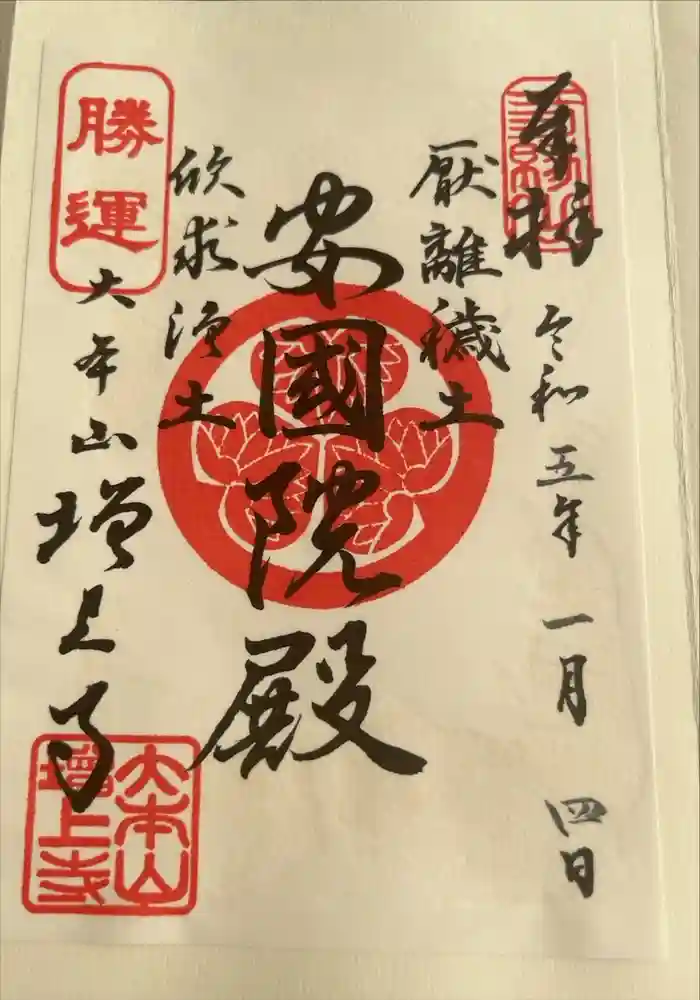 奉拝
令和五年 一月 四日
厭離穢土
安國院殿
欣求浄土
勝運
大本山 増上寺
大本山
増上寺